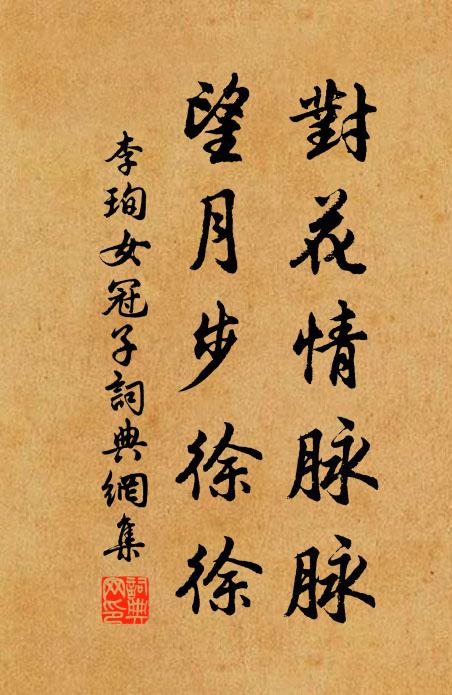 對花情脉脉
望月步徐徐
李珣女冠子詞典網集
詞典網印